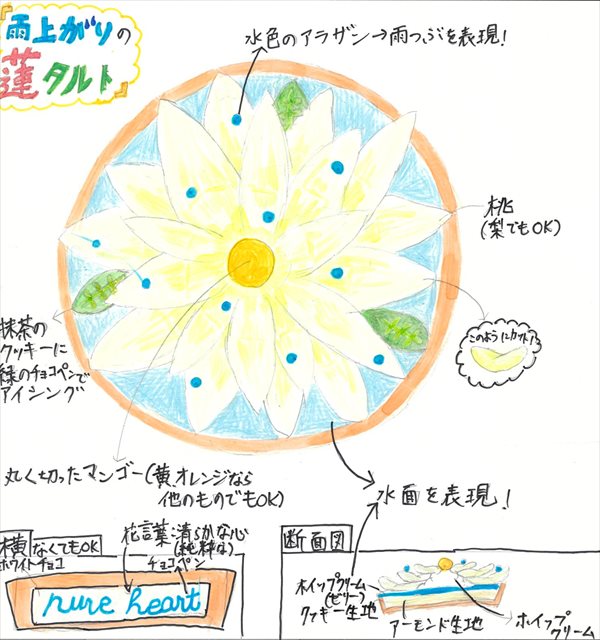 雨上がりの
蓮タルト
水色のアラザン→雨つぶを表現!
桃
(梨でもOK)
このようにカット
抹茶の
クッキーに
緑のチョコペンで
アイシング
丸く切ったマンゴー(黄、オレンジなら
他のものでもOK)
水面を表現!
横
なくてもOK
ホワイトチョコ
花言葉:清らかな心
(純粋な)
チョコペン
pure heart
断面図
ホイップクリーム
(ゼリー)
クッキー生地
アーモンド生地
ホイップ
クリーム